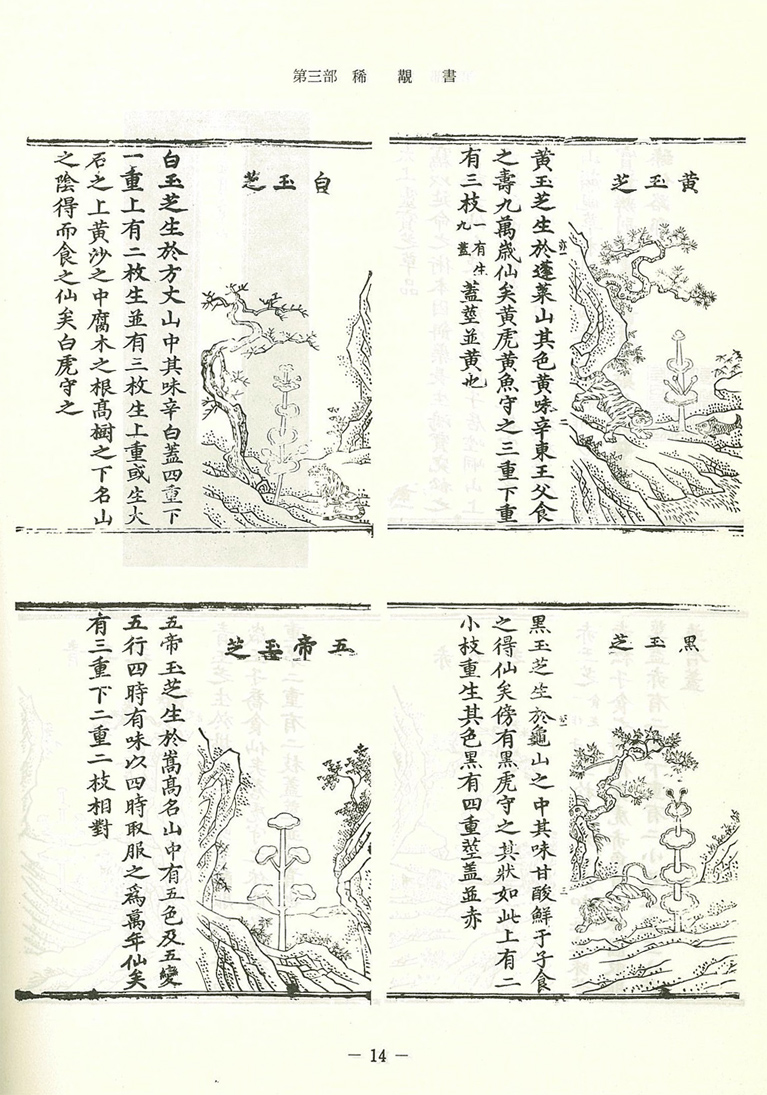 第三部 稀 覯 書
黄玉芝
黄玉芝生於蓬莱山其色黄味辛東王父食
之壽九萬歲仙矣黄虎黄魚守之三重下重
有三枝一有生九蓋蓋莖並黄也
白玉芝
白玉芝生於方丈山中其味辛白蓋四重下
一重上有二枚生並有三枚生上重或生大
石之上黄沙之中腐木之根高樹之下名山
之陰得而食之仙矣白虎守之
黒玉芝
黒玉芝生於龜山之中其味甘酸鮮于子食
之得仙矣傍有黒虎守之其狀如此上有二
小枝重生其色黒有四重莖蓋並赤
五帝玉芝
五帝玉芝生於嵩高名山中有五色及五變
五行四時有味以四時取服之爲萬年仙矣
有三重下二重二枝相對
— 14 —